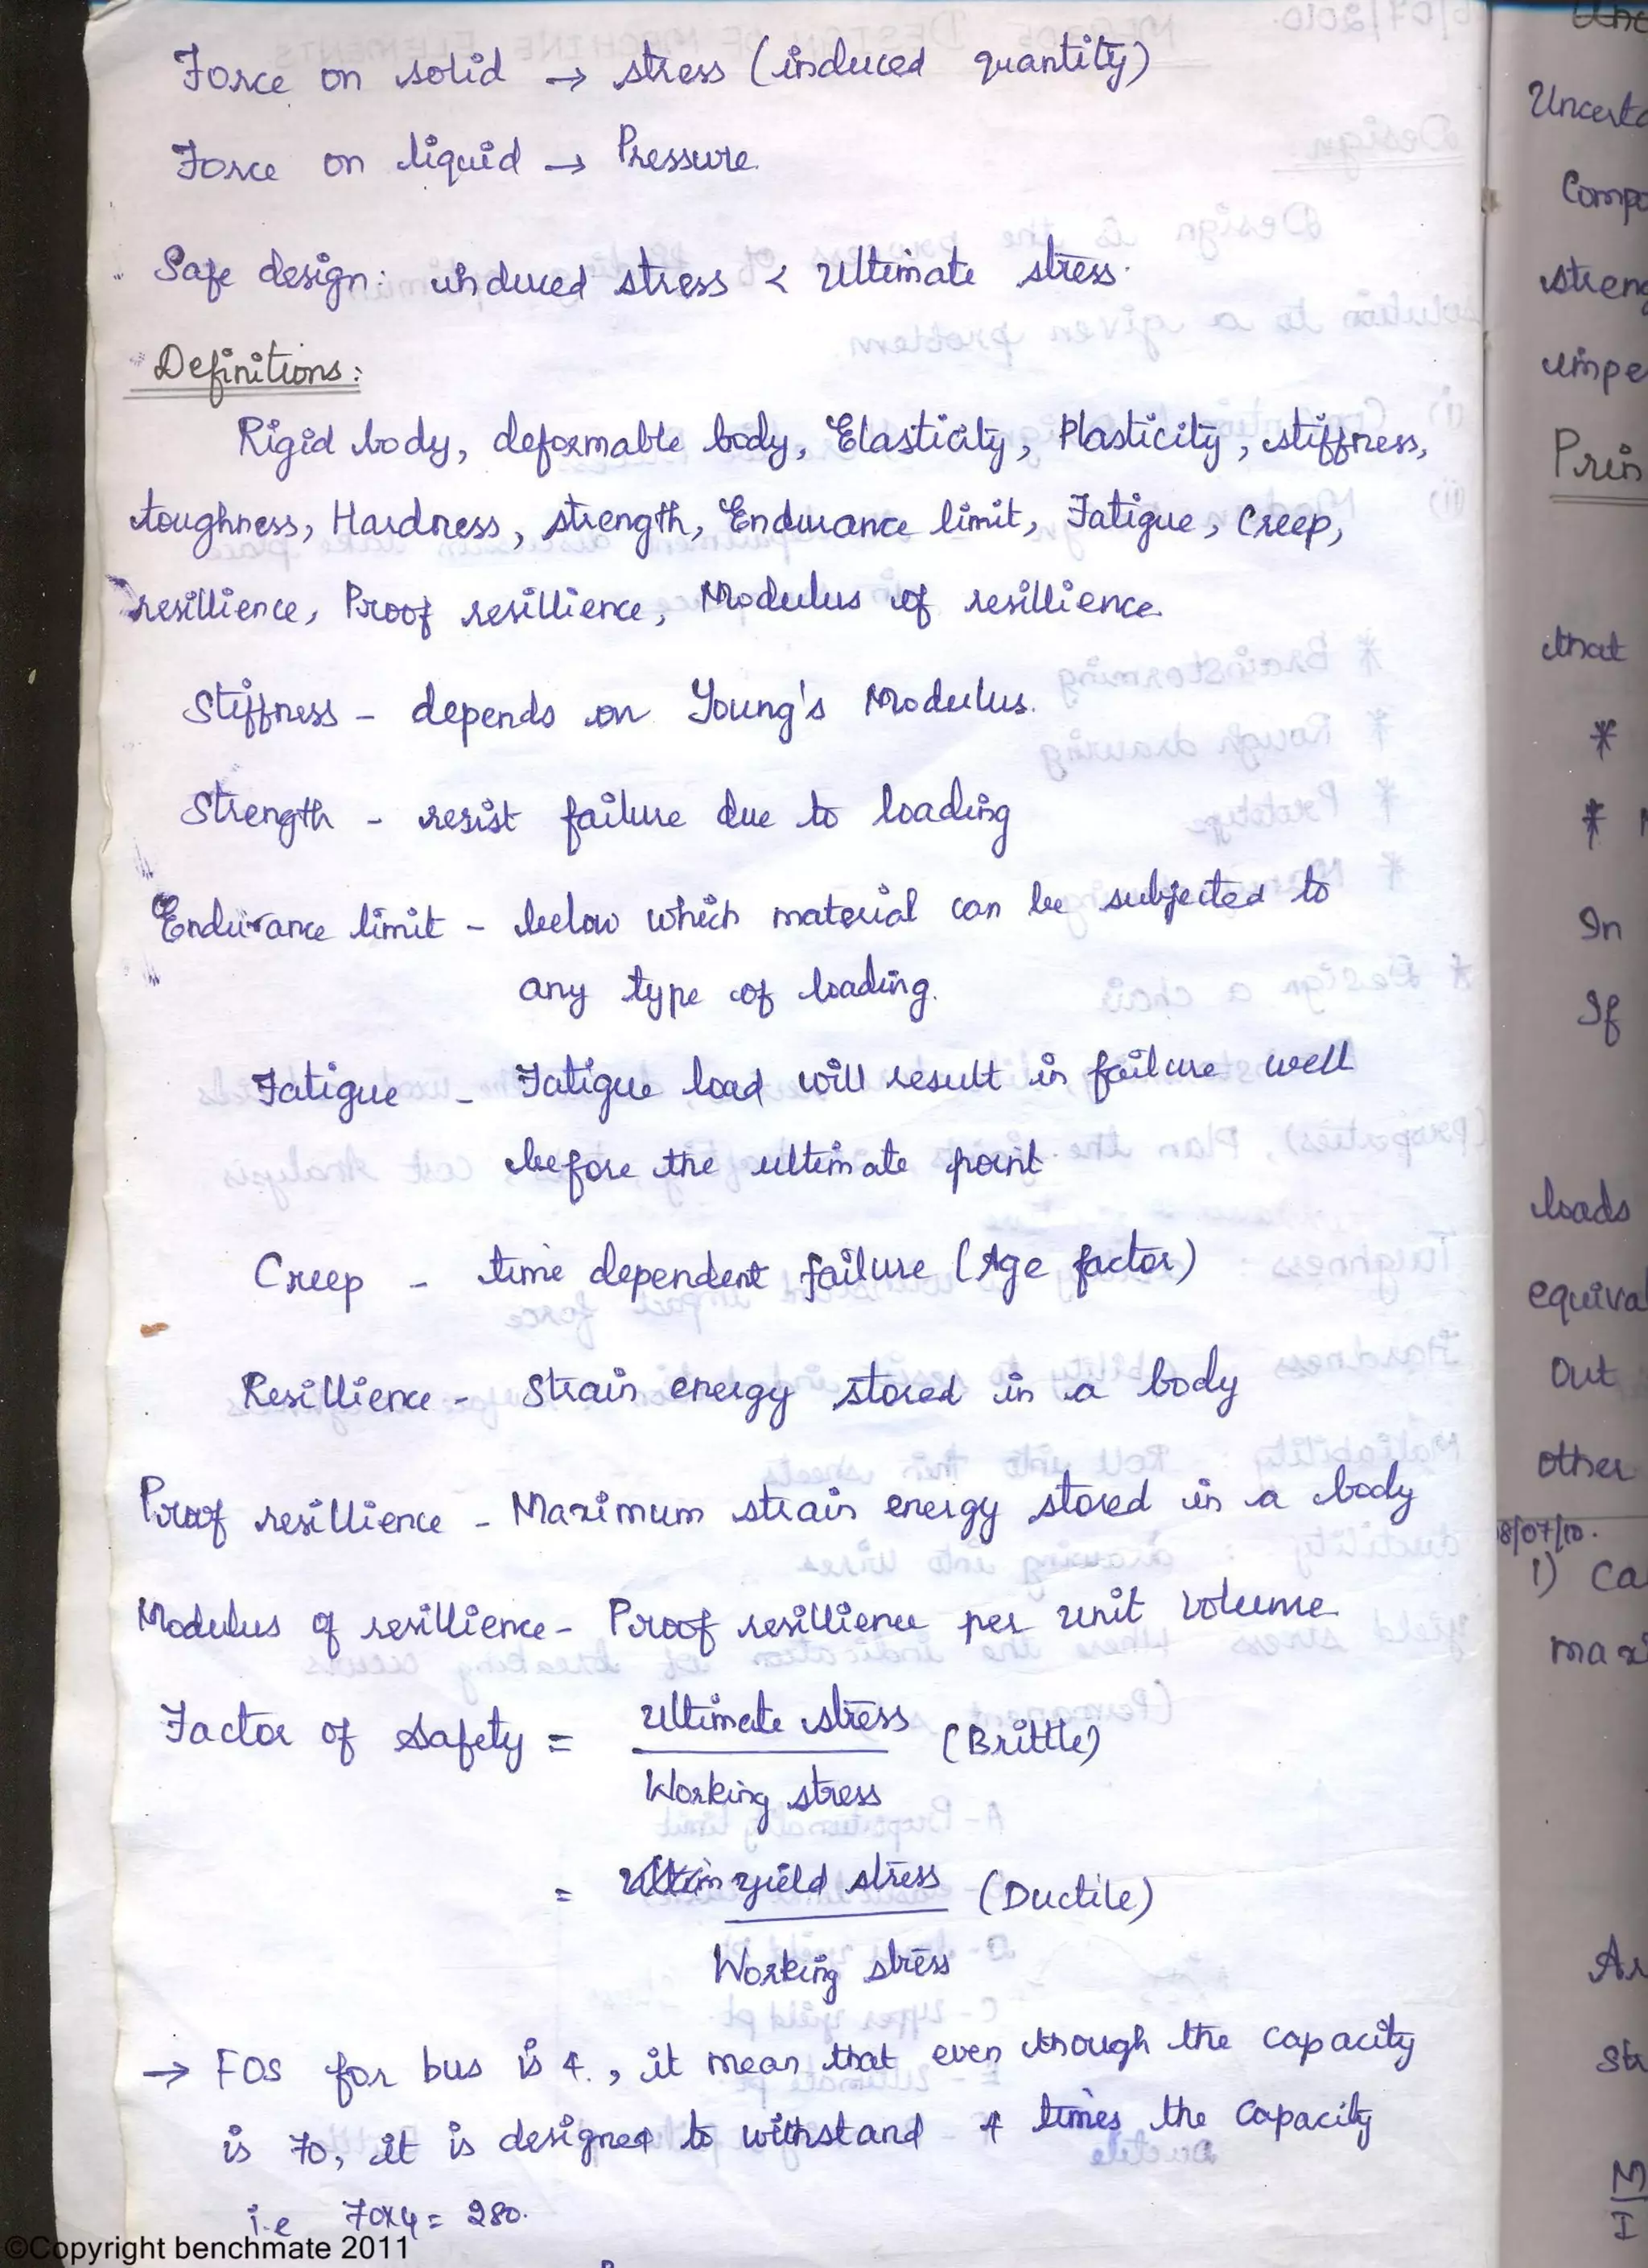 Force on solid → stress (induced quantity)
Force on liquid → Pressure.
Safe design: induced stress < ultimate stress.
Definitions:
Rigid body, deformable body, Elasticity, Plasticity, stiffness,
toughness, Hardness, strength, Endurance limit, Fatigue, Creep,
resillience, Proof resillience, Modulus of resillience.
Stiffness - depends on Young's Modulus.
Strength - resist failure due to loading
Endurance limit - below which material can be subjected to
any type of loading.
Fatigue - Fatigue load will result in failure well
before the ultimate point.
Creep - time dependent failure (Age factor)
Resillience - Strain energy stored in a body
Proof resillience - Maximum strain energy stored in a body
Modulus of resillience - Proof resillience per unit volume.
Factor of safety = Ultimate stress (Brittle)
Working stress
= yield stress (Ductile)
Working stress
→ FOS for bus is 4., it mean that even though the capacity
is 70, it is designed to withstand 4 times the capacity
i.e 70x4 = 280.
©Copyright benchmate 2011
Compo
streng
impe
Prin
that
*
*
In
If
loads
equiva
Out
other
18/07/10.
1) Ca
maxi